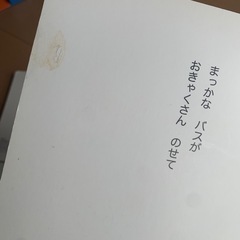 まっかな バスが
おきゃくさん のせて